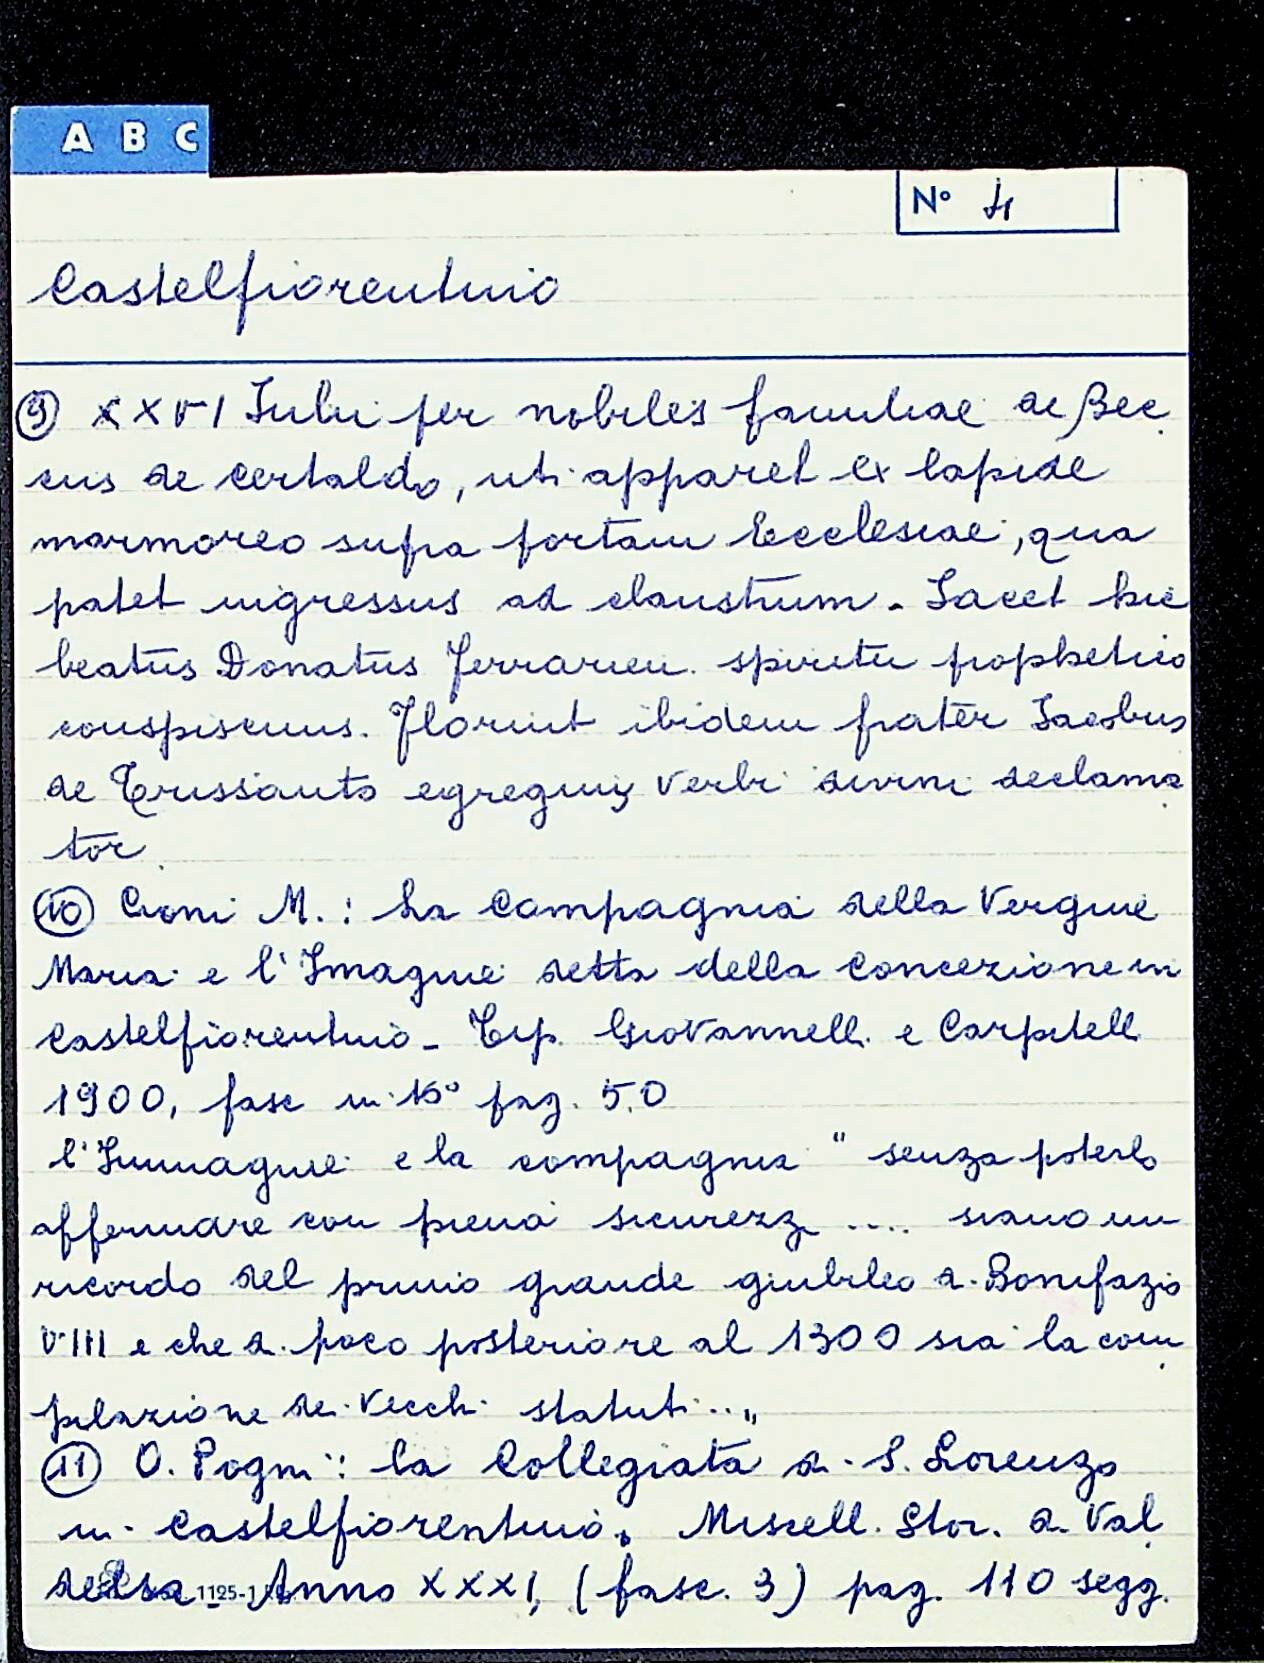 A B C
N° 4
Castelfiorentino
(9) XXVI Iulii per nobiles familiae de Bec
cus de Certaldo, uti apparet ex lapide
marmoreo supra portam Ecclesiae, qua
patet ingressus ad claustrum. Iacet hic
beatus Donatus Ferrarien. spiritu prophetico
conspiscuus. Floruit ibidem frater Iacobus
de Trissanto egregius verbi divini declama
tor
(10) Cioni M. : La Compagnia della Vergine
Maria e l'Imagine detta della Concezione in
Castelfiorentino - Tip. Giovannelli e Carpitelli
1900, fasc in 16° pag. 50
l'Immagine e la compagnia " senza poterlo
affermare con piena sicurezza .... siano un
ricordo del primo grande giubileo di Bonifazio
VIII e che di poco posteriore al 1300 sia la com
pilazione dei vecchi statuti .. „
(11) O. Pogni : la Collegiata di S. Lorenzo
in Castelfiorentino. Miscell. Stor. d. Val
delsa 1125-1 Anno XXXI, (fasc. 3) pag. 110 segg.